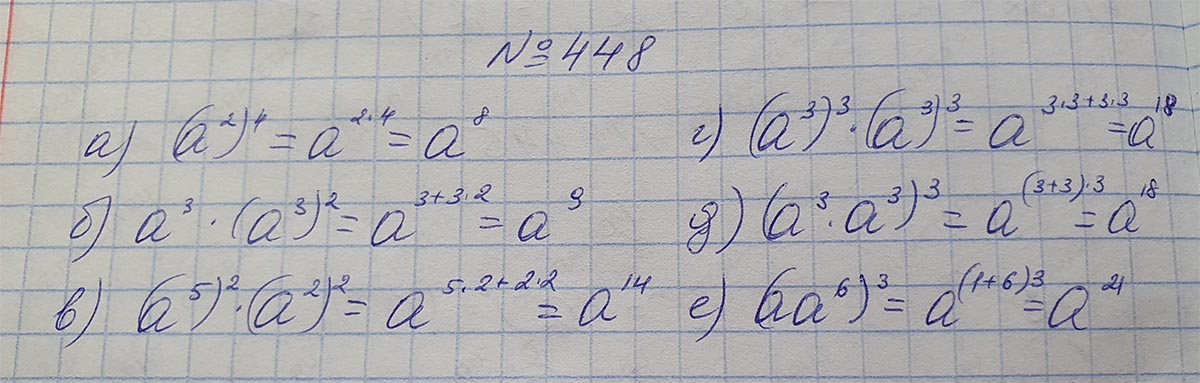 №448
а) (a²)⁴ = a²·⁴ = a⁸
б) a³ · (a³)² = a³⁺³·² = a⁹
в) (a⁵)² · (a²)² = a⁵·²⁺²·² = a¹⁴
г) (a³)³ · (a³)³ = a³·³⁺³·³ = a¹⁸
д) (a³ · a³)³ = a⁽³⁺³⁾·³ = a¹⁸
е) (aa⁶)³ = a⁽¹⁺⁶⁾³ = a²¹